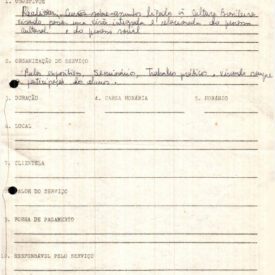 1. OBJETIVOS
Realizar Cursos sobre assuntos ligados à Cultura Brasileira
visando uma visão integrada e relacionada do pessoa
cultural e do pessoa social
2. ORGANIZAÇÃO DO SERVIÇO
Aulas expositivas, Seminários, Trabalhos práticos, visando sempre
a participação do aluno.
3. DURAÇÃO 4. CARGA HORÁRIA 5. HORÁRIO
6. LOCAL
7. CLIENTELA
8. VALOR DO SERVIÇO
9. FORMA DE PAGAMENTO
10. RESPONSÁVEL PELO SERVIÇO